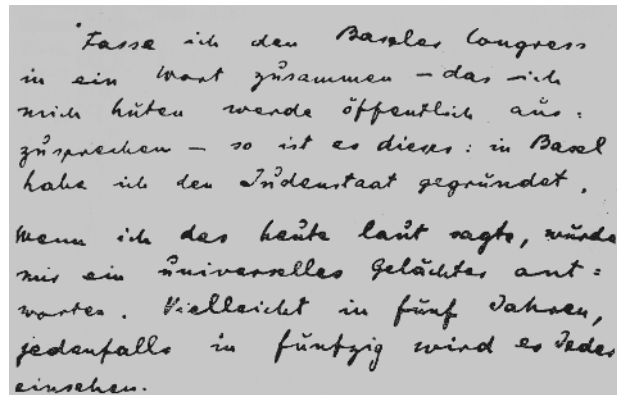 Fasse ich den Baseler Congress
in ein Wort zusammen – das ich
mich hüten werde öffentlich aus:
zusprechen – so ist es dieses: in Basel
habe ich den Judenstaat gegründet.
Wenn ich das heute laut sagte, würde
mir ein universelles Gelächter ant=
worten. Vielleicht in fünf Jahren,
jedenfalls in fünfzig wird es Jeder
einsehen.